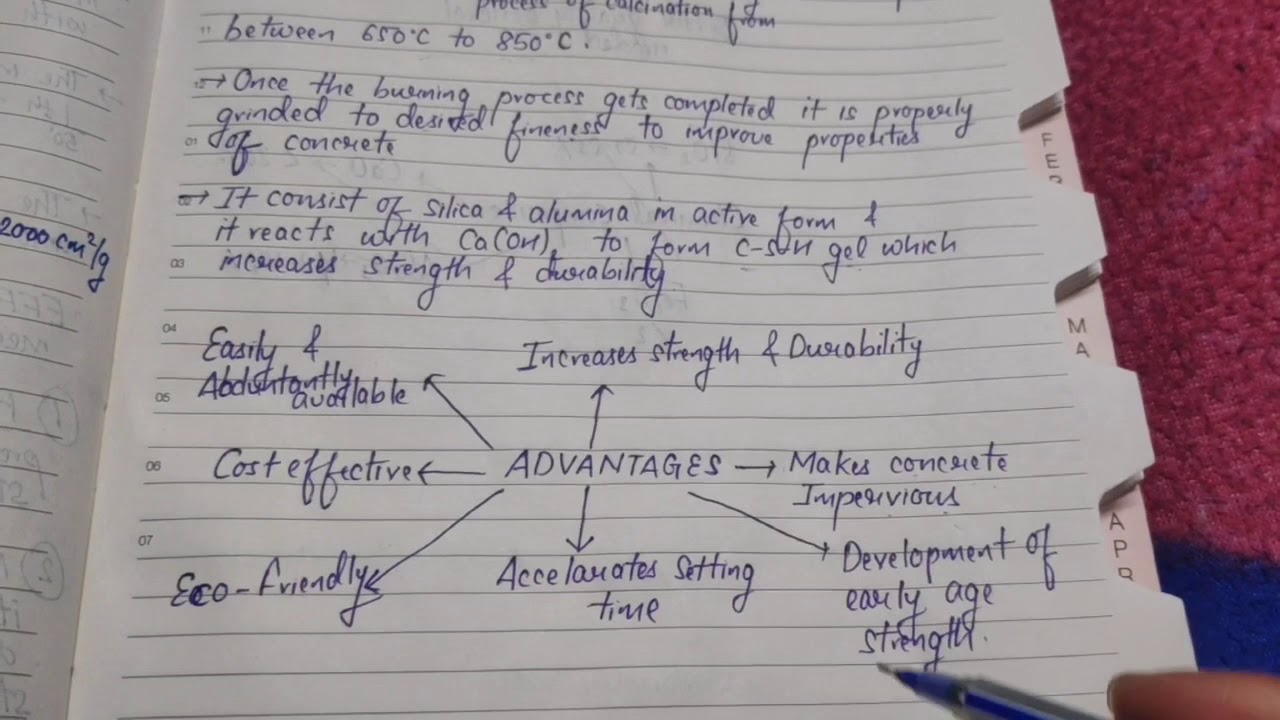 process of calcination from
between 650°C to 850°C.
→ Once the burning process gets completed it is properly
grinded to desired fineness to improve properties
01 of concrete
→ It consist of silica & alumina in active form &
it reacts with Ca(OH)2 to form C-S-H gel which
03 increases strength & durability
2000 cm²/g
04 Easily &
Abduntantly
available
05
Increases strength & Durability
06 Cost effective ← ADVANTAGES → Makes concrete
Impervious
07
Eco-friendly
Accelarates setting
time
Development of
early age
strength.
FEB
MA
APR